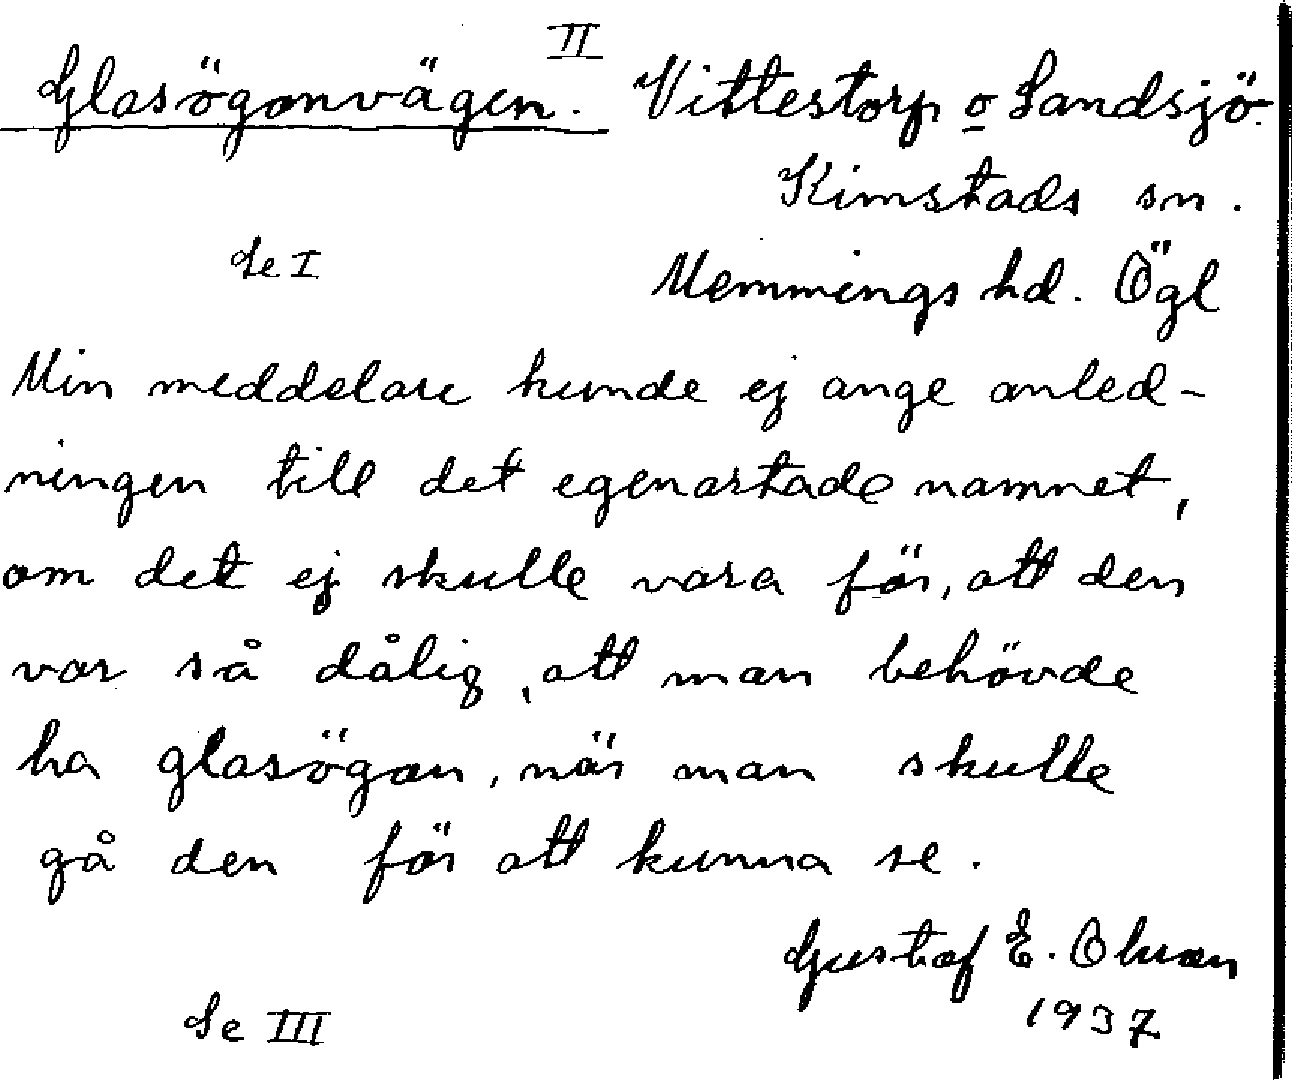 II
Glasögonvägen. Vittestorp o Sandsjö.
Kimstads sn.
Se I Memmings hd. Ögl
Min meddelare kunde ej ange anled-
ningen till det egenartade namnet,
om det ej skulle vara för, att den
var så dålig, att man behövde
ha glasögon, när man skulle
gå den för att kunna se.
Gustaf E. Olsson
1937
Se III